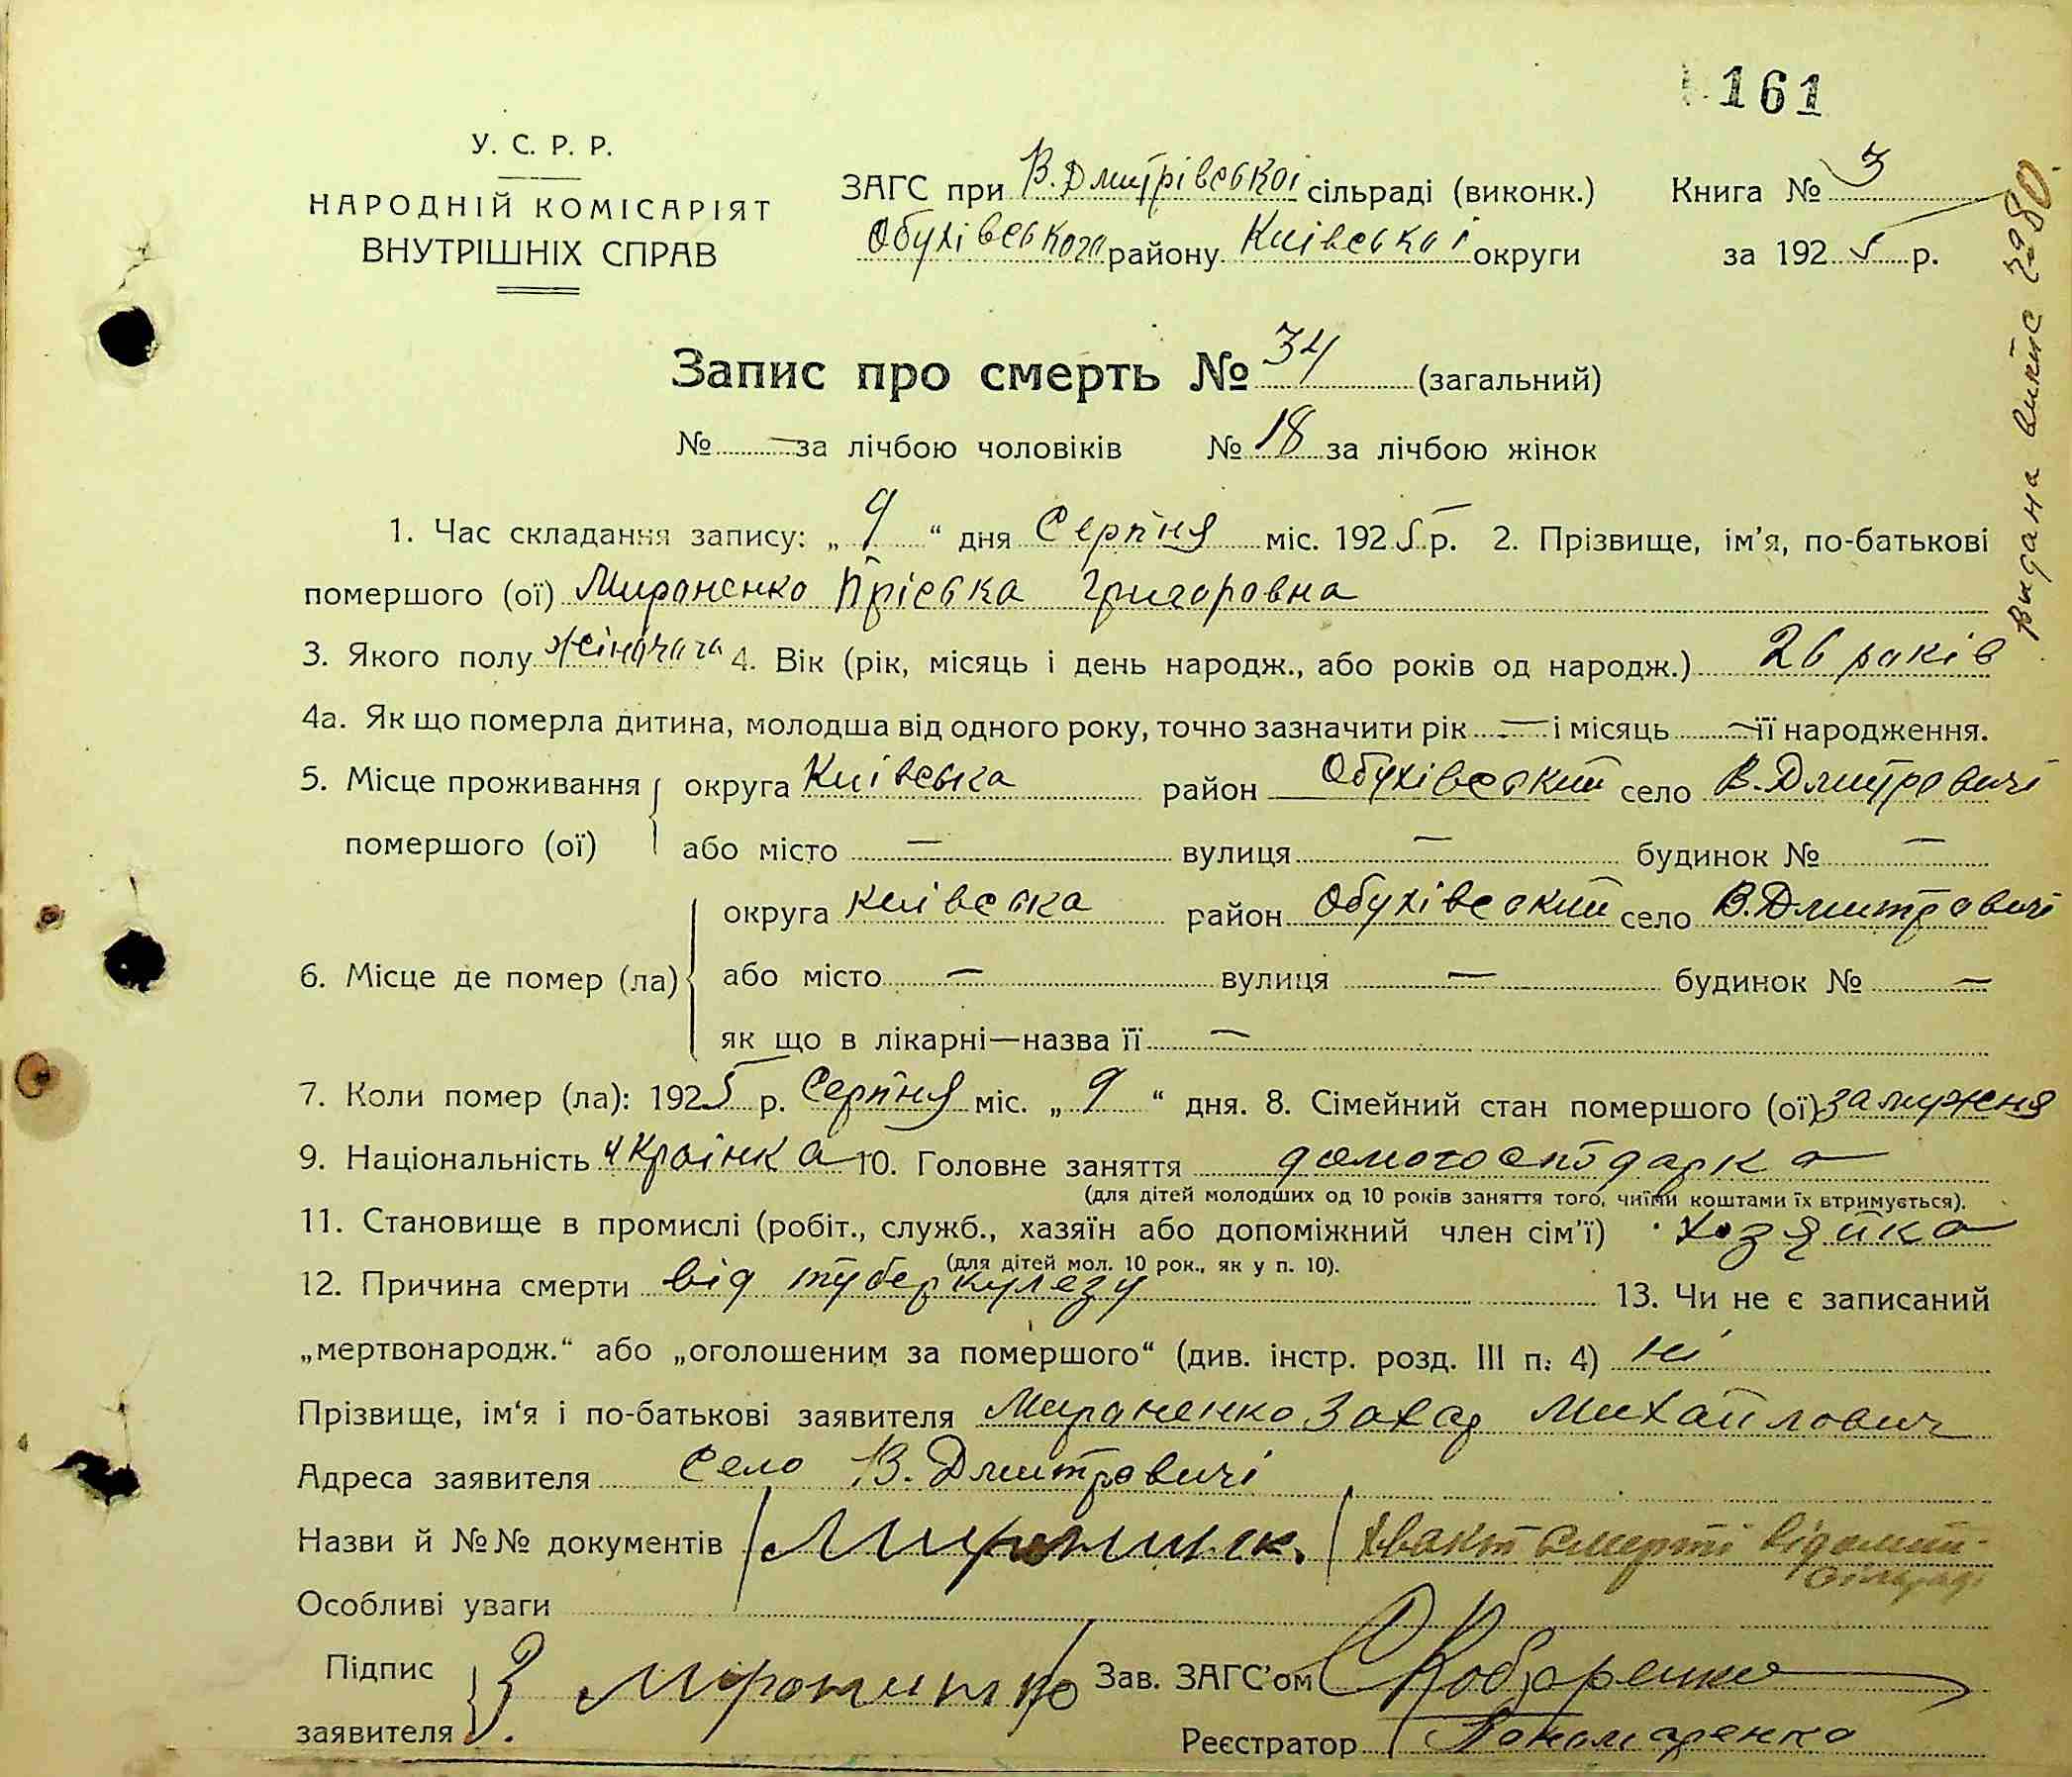 161
У. С. Р. Р.
НАРОДНІЙ КОМІСАРІЯТ
ВНУТРІШНІХ СПРАВ
ЗАГС при В.Дмитрівської сільраді (виконк.)
Обухівського району Київської округи
Книга № 3
за 1925 р.
Видана виписка 1980
Запис про смерть № 34 (загальний)
№ — за лічбою чоловіків № 18 за лічбою жінок
1. Час складання запису: „ 9 “ дня Серпня міс. 1925 р. 2. Прізвище, ім’я, по-батькові
помершого (ої) Мироненко Прiська Григоровна
3. Якого полу жіночого 4. Вік (рік, місяць і день народж., або років од народж.) 26 років
4а. Як що померла дитина, молодша від одного року, точно зазначити рік — і місяць — її народження.
5. Місце проживання помершого (ої) округа Київська район Обухівський село В.Дмитровичі
або місто — вулиця — будинок № —
6. Місце де помер (ла) округа Київська район Обухівский село В.Дмитровичі
або місто — вулиця — будинок № —
як що в лікарні—назва її —
7. Коли помер (ла): 1925 р. Серпня міс. „ 9 “ дня. 8. Сімейний стан помершого (ої) замужня
9. Національність українка 10. Головне заняття домогосподарка
(для дітей молодших од 10 років заняття того, чиїми коштами їх втримується).
11. Становище в промислі (робіт., служб., хазяїн або допоміжний член сім’ї) хозяйка
(для дітей мол. 10 рок., як у п. 10).
12. Причина смерти від туберкулезу 13. Чи не є записаний
„мертвонародж.“ або „оголошеним за помершого“ (див. інстр. розд. III п. 4) ні
Прізвище, ім‘я і по-батькові заявителя Мироненко Захар Михайлович
Адреса заявителя село В. Дмитровичі
Назви й №№ документів хвакт смерті відомий сільраді
Особливі уваги
Підпис заявителя З Міроненко Зав. ЗАГС’ом
Реєстратор Пономаренко